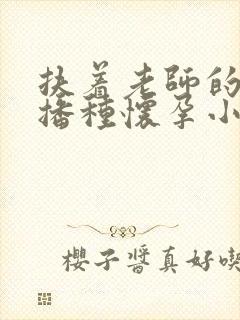 扶着老師的
播種懷孕小
櫻子醬真好喫